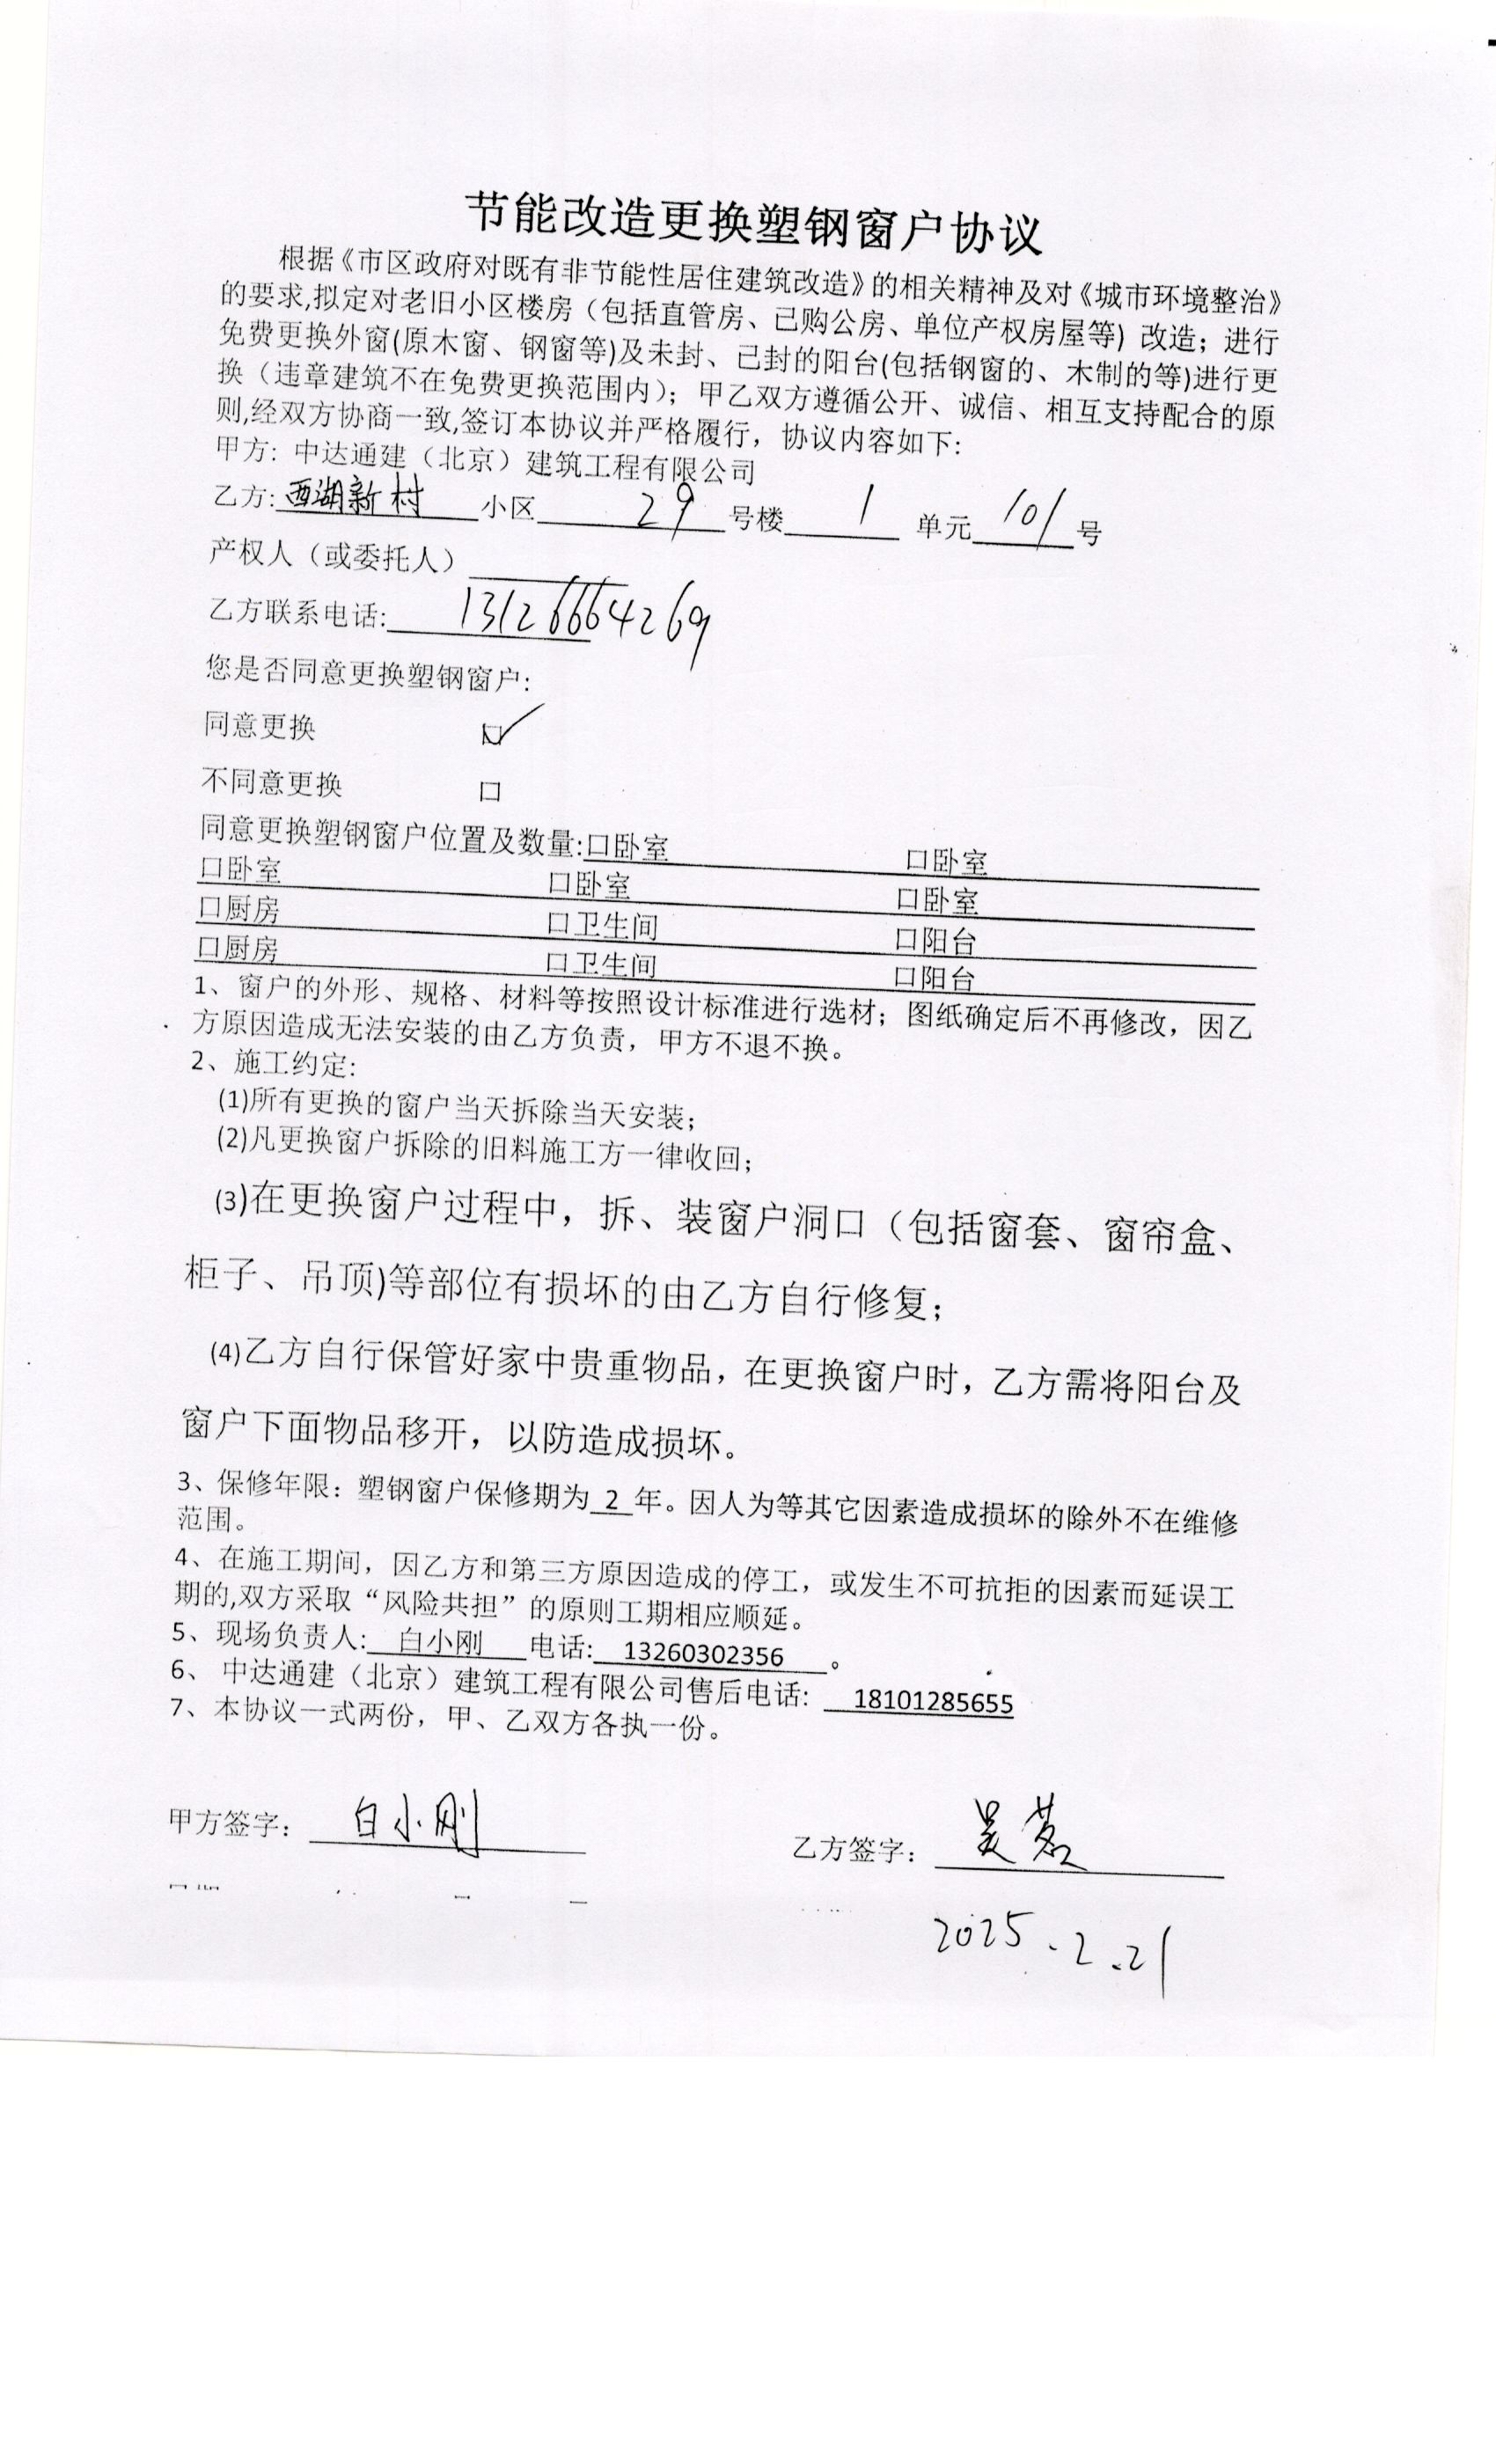 节能改造更换塑钢窗户协议
根据《市区政府对既有非节能性居住建筑改造》的相关精神及对《城市环境整治》
的要求,拟定对老旧小区楼房（包括直管房、已购公房、单位产权房屋等）改造；进行
免费更换外窗(原木窗、钢窗等)及未封、已封的阳台(包括钢窗的、木制的等)进行更
换（违章建筑不在免费更换范围内）；甲乙双方遵循公开、诚信、相互支持配合的原
则,经双方协商一致,签订本协议并严格履行，协议内容如下:
甲方: 中达通建（北京）建筑工程有限公司
乙方: 西湖新村 小区 29 号楼 1 单元 101 号
产权人（或委托人）
乙方联系电话: 13126664269
您是否同意更换塑钢窗户:
同意更换 ☑
不同意更换 口
同意更换塑钢窗户位置及数量:口卧室 口卧室
口卧室 口卧室 口卧室
口厨房 口卫生间 口阳台
口厨房 口卫生间 口阳台
1、窗户的外形、规格、材料等按照设计标准进行选材；图纸确定后不再修改，因乙
方原因造成无法安装的由乙方负责，甲方不退不换。
2、施工约定:
(1)所有更换的窗户当天拆除当天安装；
(2)凡更换窗户拆除的旧料施工方一律收回；
(3)在更换窗户过程中，拆、装窗户洞口（包括窗套、窗帘盒、
柜子、吊顶)等部位有损坏的由乙方自行修复；
(4)乙方自行保管好家中贵重物品，在更换窗户时，乙方需将阳台及
窗户下面物品移开，以防造成损坏。
3、保修年限：塑钢窗户保修期为 2 年。因人为等其它因素造成损坏的除外不在维修
范围。
4、在施工期间，因乙方和第三方原因造成的停工，或发生不可抗拒的因素而延误工
期的,双方采取“风险共担”的原则工期相应顺延。
5、现场负责人: 白小刚 电话: 13260302356 。
6、中达通建（北京）建筑工程有限公司售后电话: 18101285655
7、本协议一式两份，甲、乙双方各执一份。
甲方签字： 白小刚 乙方签字： 吴
2025.2.21